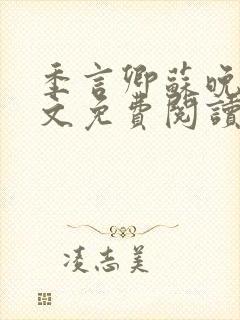 季言卿蘇晚
文免費閱讀
凌志美